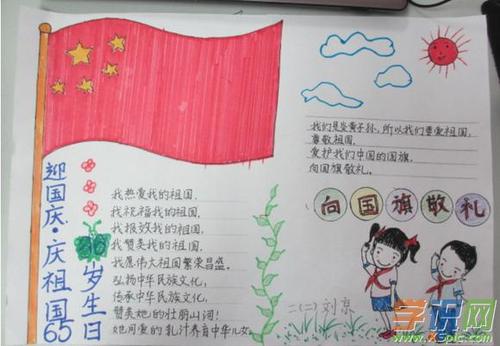 迎国庆·庆祖国65
岁生日
我热爱我的祖国，
我祝福我的祖国，
我报效我的祖国，
我赞美我的祖国，
我愿伟大祖国繁荣昌盛。
弘扬中华民族文化，
传承中华民族文化，
赞美她的壮丽山河！
她间爱的乳汁养育中华儿女
我们是炎黄子孙，所以我们要爱祖国，
尊敬祖国，
爱护我们中国的国旗，
向国旗敬礼。
向国旗敬礼
二(二)刘京
学识网
www.xspic.com